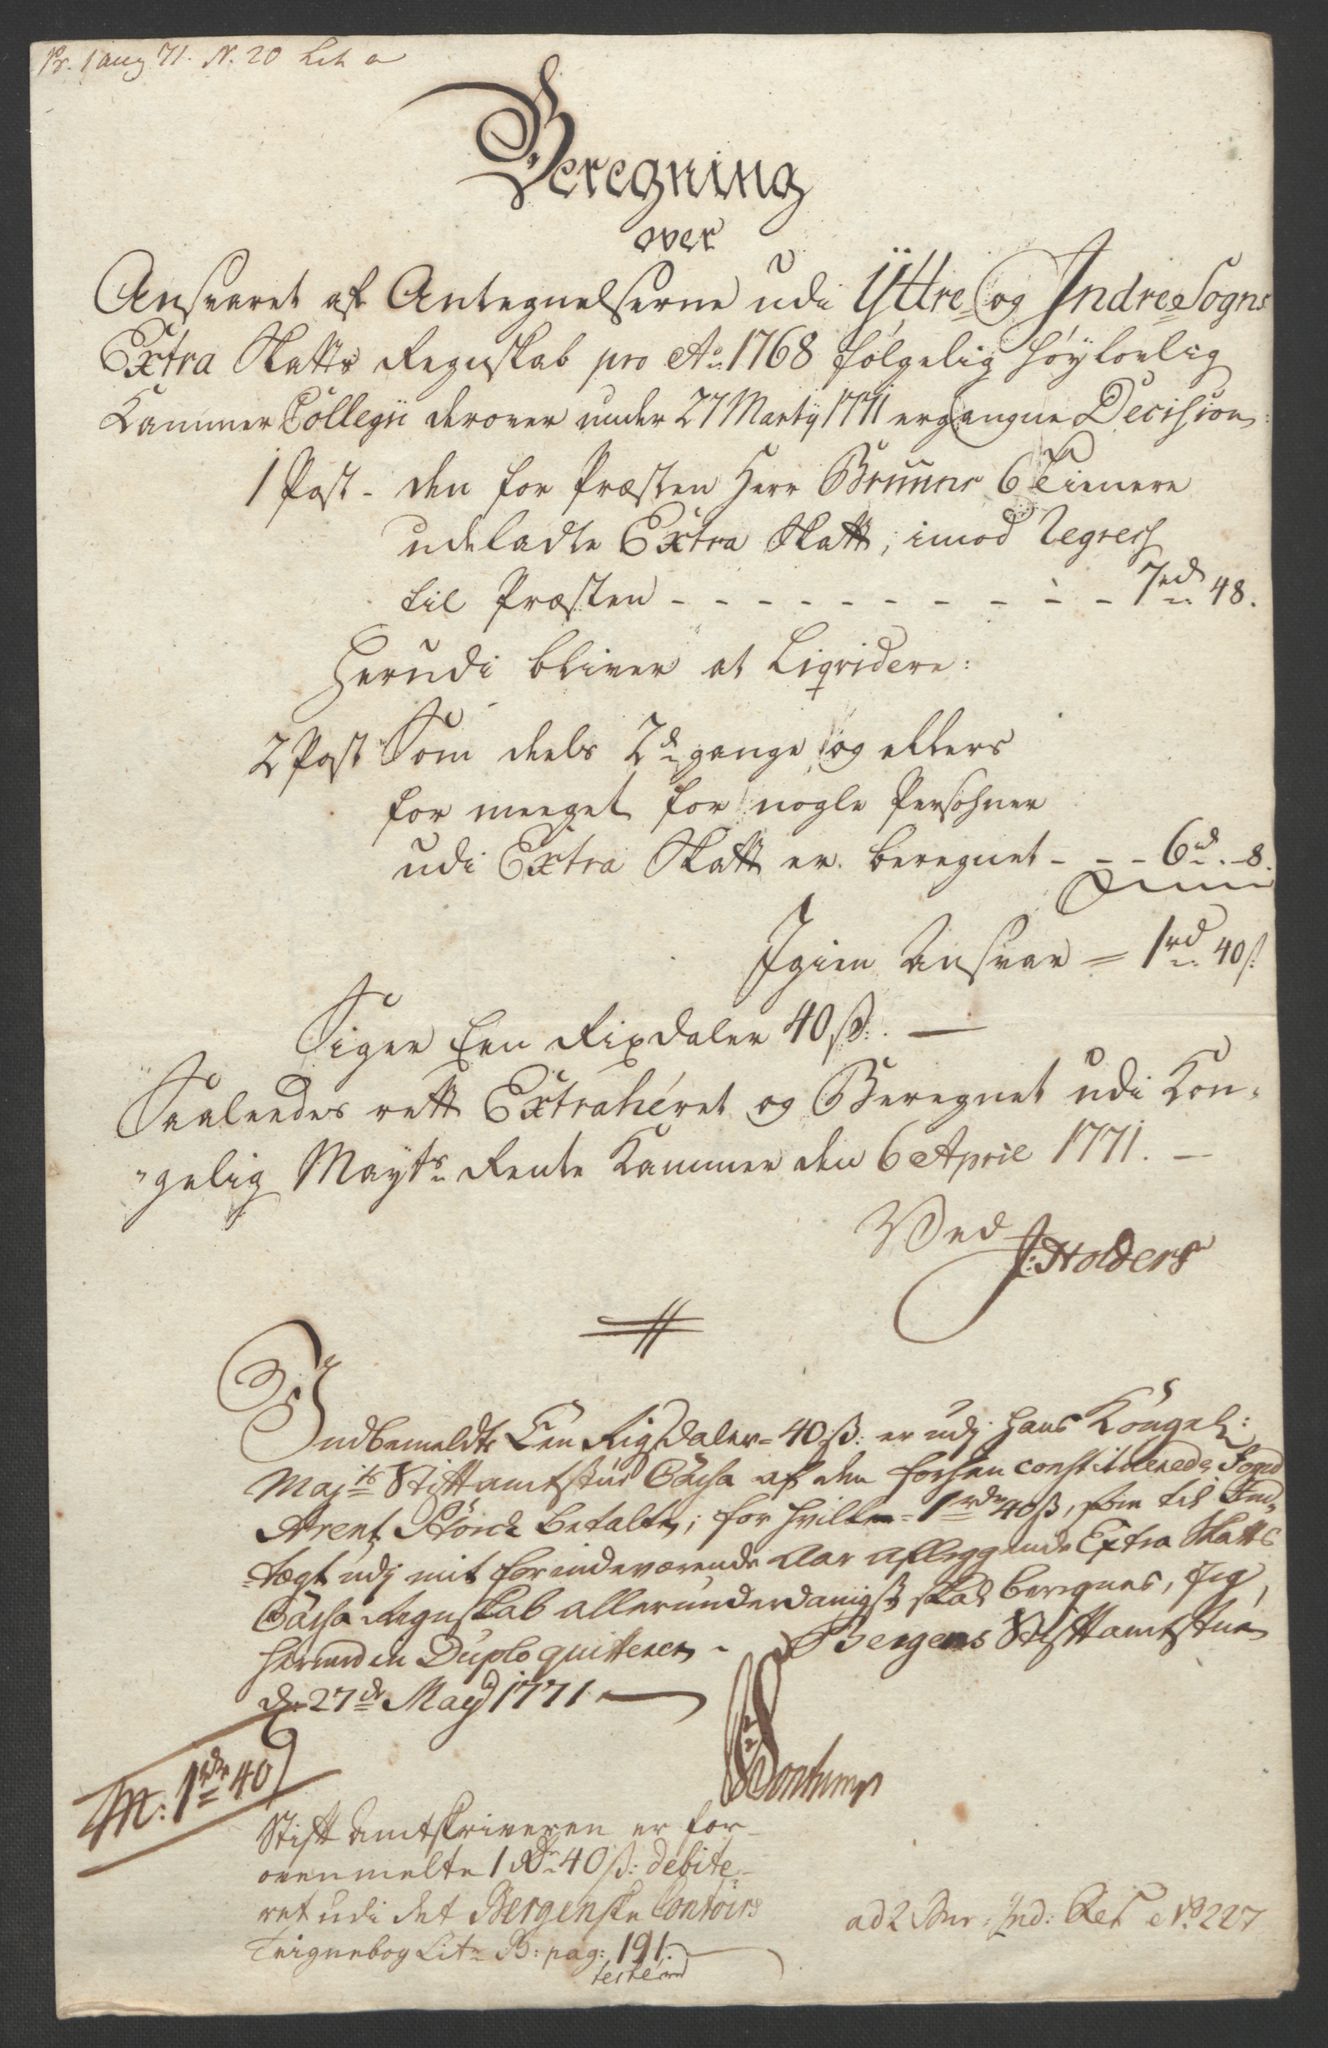 Pr. 1 aug 71. N. 20 Lit a
Beregning
over
Ansvaret af Antegnelserne udi Ÿttre og Indre Sogns
Extra Skatts Regnskab pro Ao 1768 følgelig Høylovlig
Kammer Collegii derover under 27 Martÿ 1771 ergangne Decision:
1 Post - den for Præsten Herr Bruuns 6 Tienere
udeladte Extra Skatt, imod Regress
til Præsten - - - - - - - - - - - 7rd 48.
Herudi bliver at Liqvidere:
2 Post Som deels 2de gange og ellers
for meeget for nogle Persohner
udi Extra Skatt er beregnet - - - 6d. - 8.
Igien Ansvar = 1rd 40ß.
Siger Een Rixdaler 40 ß. —
Saaledes rett Extraheret og Beregnet udi Kon-
gelig Mayts Rente Kammer den 6 April 1771. —
Ved
J: Holders
Indbemeldte Een Rigsdaler 40 ß: er udj Hans Kongel:
Majts Stiftamtstue Cassa af den forhen constituerede Foged
Arent Störch betalte; for hvilke 1rdr 40ß, som til Ind-
tægt udj mit for indeværende Aar aflæggende Extra Skatts
Cassa Regnskab allerunderdanigst skal beregnes, Jeg
herved in Duplo quitterer - Bergens Stiftamtstue
d: 27de Maÿ 1771 —
M: 1rdr 40
Stift Amtskriveren er for-
ovenmelte 1 Rdr 40 ß: debite-
ret udi det Bergenske Contoirs
Teignebog Litr B: pag: 191.
testerer
ad 2 Ind: Ret No 227